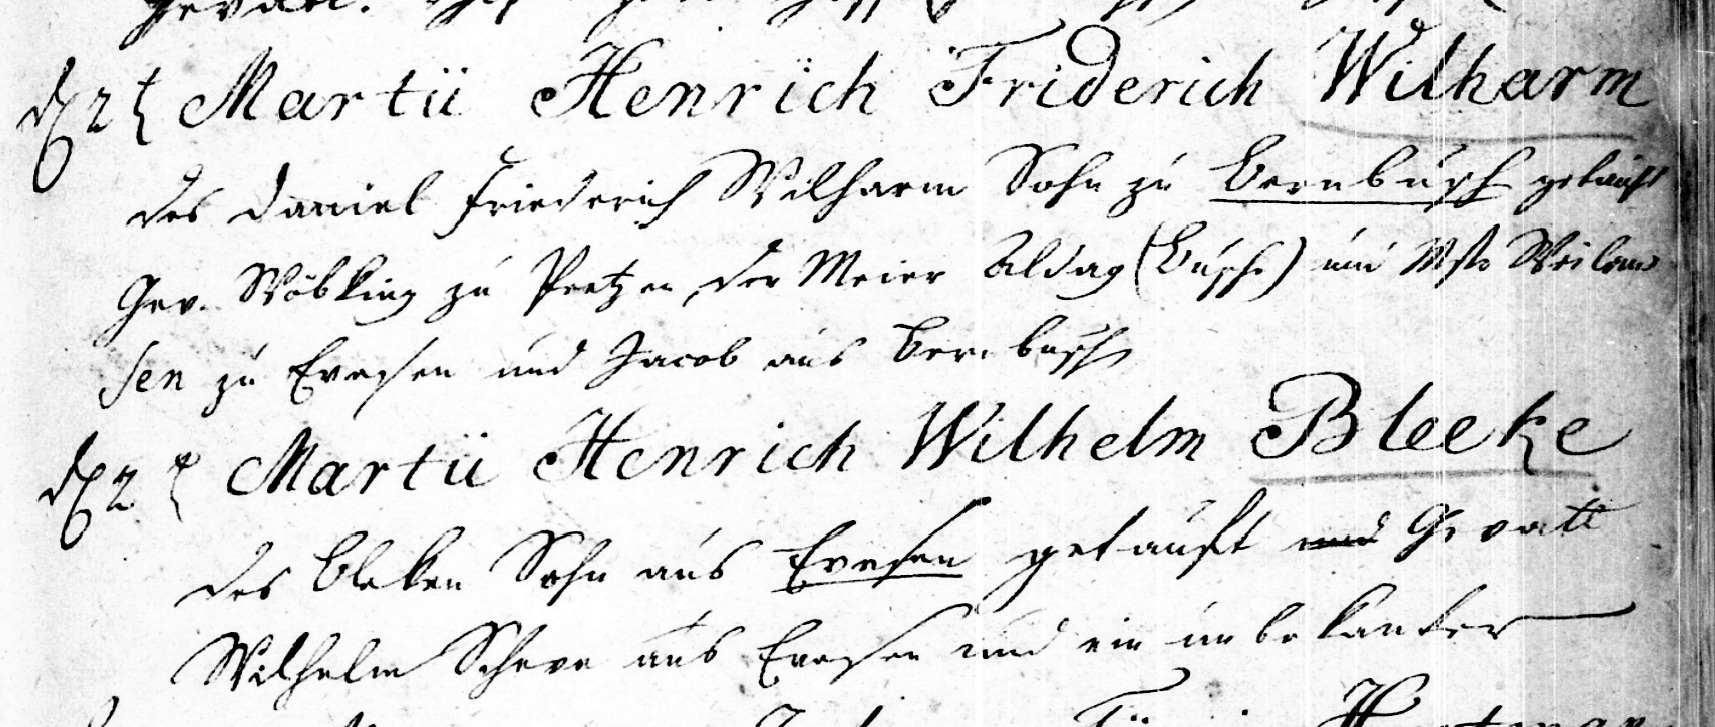 d 2t Martii Henrich Friderich Wilharm
des Daniel Friederich Wilharm Sohn zu Bernbusch getauft
Gev. Wöbking zu Petzen, der Meier Aldag (Busche) und
sen zu Evesen und Jacob aus Bernbusch
d 2t Martii Henrich Wilhelm Bleeke
des Bleken Sohn aus Evesen getauft und Gevatt
Wilhelm Scheve aus Evesen und ein unbekanter